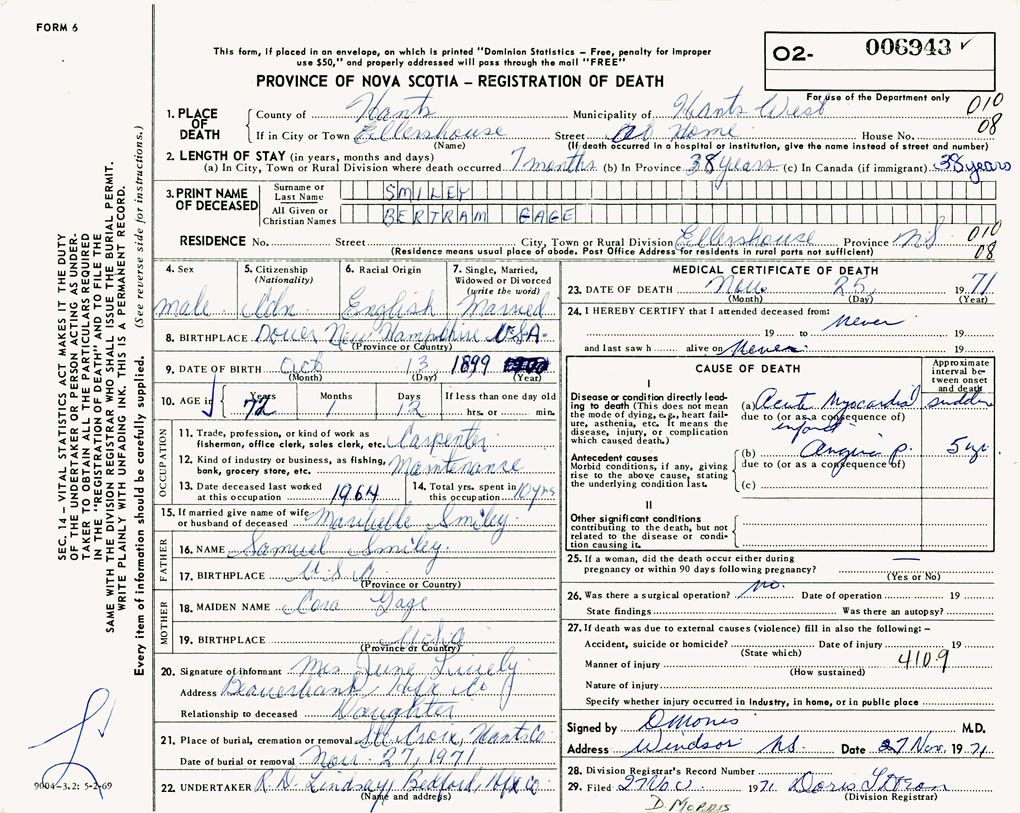 FORM 6
This form, if placed in an envelope, on which is printed "Dominion Statistics — Free, penalty for improper
use $50," and properly addressed will pass through the mail "FREE"
PROVINCE OF NOVA SCOTIA – REGISTRATION OF DEATH
O2- 006943 ✓
For use of the Department only
010
08
1. PLACE OF DEATH
County of Hants Municipality of Hants West
If in City or Town Ellershouse Street At Home House No.
(Name) (If death occurred in a hospital or institution, give the name instead of street and number)
2. LENGTH OF STAY (in years, months and days)
(a) In City, Town or Rural Division where death occurred 7 months (b) In Province 38 years (c) In Canada (if immigrant) 38 years
3. PRINT NAME OF DECEASED
Surname or Last Name SMILEY
All Given or Christian Names BERTRAM GAGE
RESIDENCE No. Street City, Town or Rural Division Ellershouse Province N.S. 010
(Residence means usual place of abode. Post Office Address for residents in rural parts not sufficient) 08
4. Sex
male
5. Citizenship
(Nationality)
Cdn
6. Racial Origin
English
7. Single, Married,
Widowed or Divorced
(write the word)
Married
8. BIRTHPLACE Dover New Hampshire U.S.A.
(Province or Country)
9. DATE OF BIRTH Oct 13 1899
(Month) (Day) (Year)
10. AGE in Years Months Days If less than one day old
72 1 12 hrs. or min.
OCCUPATION
11. Trade, profession, or kind of work as
fisherman, office clerk, sales clerk, etc. Carpenter
12. Kind of industry or business, as fishing,
bank, grocery store, etc. Maintenance
13. Date deceased last worked
at this occupation 1964
14. Total yrs. spent in
this occupation 10 yrs
15. If married give name of wife
or husband of deceased Maribelle Smiley
FATHER
16. NAME Samuel Smiley
17. BIRTHPLACE U.S.A.
(Province or Country)
MOTHER
18. MAIDEN NAME Cora Gage
19. BIRTHPLACE U.S.A.
(Province or Country)
20. Signature of informant Mrs June
Address Beaverbank, Hfx Co
Relationship to deceased Daughter
21. Place of burial, cremation or removal St. Croix, Hants Co.
Date of burial or removal Nov. 27, 1971
22. UNDERTAKER R.D. Lindsay, Bedford, Hfx Co
(Name and address)
MEDICAL CERTIFICATE OF DEATH
23. DATE OF DEATH Nov. 25, 1971
(Month) (Day) (Year)
24. I HEREBY CERTIFY that I attended deceased from:
never
19 to 19
and last saw h alive on Never 19
CAUSE OF DEATH
Approximate
interval be-
tween onset
and death
I
Disease or condition directly lead-
ing to death (This does not mean
the mode of dying, e.g., heart fail-
ure, asthenia, etc. It means the
disease, injury, or complication
which caused death.)
(a) Acute Myocardial sudden
due to (or as a consequence of)
infarct
Antecedent causes
Morbid conditions, if any, giving
rise to the above cause, stating
the underlying condition last.
(b) Angina p. 5 yr.
due to (or as a consequence of)
(c)
II
Other significant conditions
contributing to the death, but not
related to the disease or condi-
tion causing it.
25. If a woman, did the death occur either during
pregnancy or within 90 days following pregnancy? —
(Yes or No)
26. Was there a surgical operation? no. Date of operation 19
State findings Was there an autopsy?
27. If death was due to external causes (violence) fill in also the following: –
Accident, suicide or homicide? Date of injury 19
(State which)
Manner of injury 410.9
(How sustained)
Nature of injury
Specify whether injury occurred in industry, in home, or in public place
Signed by D Morris M.D.
Address Windsor N.S. Date 27 Nov. 1971
28. Division Registrar's Record Number
29. Filed 27 Nov. 1971 Doris
(Division Registrar)
D. MORRIS
SEC. 14 – VITAL STATISTICS ACT MAKES IT THE DUTY
OF THE UNDERTAKER OR PERSON ACTING AS UNDER-
TAKER TO OBTAIN ALL THE PARTICULARS REQUIRED
IN THE "REGISTRATION OF DEATH" AND TO FILE THE
SAME WITH THE DIVISION REGISTRAR WHO SHALL ISSUE THE BURIAL PERMIT.
WRITE PLAINLY WITH UNFADING INK. THIS IS A PERMANENT RECORD.
Every item of information should be carefully supplied. (See reverse side for instructions.)
9004-3.2: 5-2-69